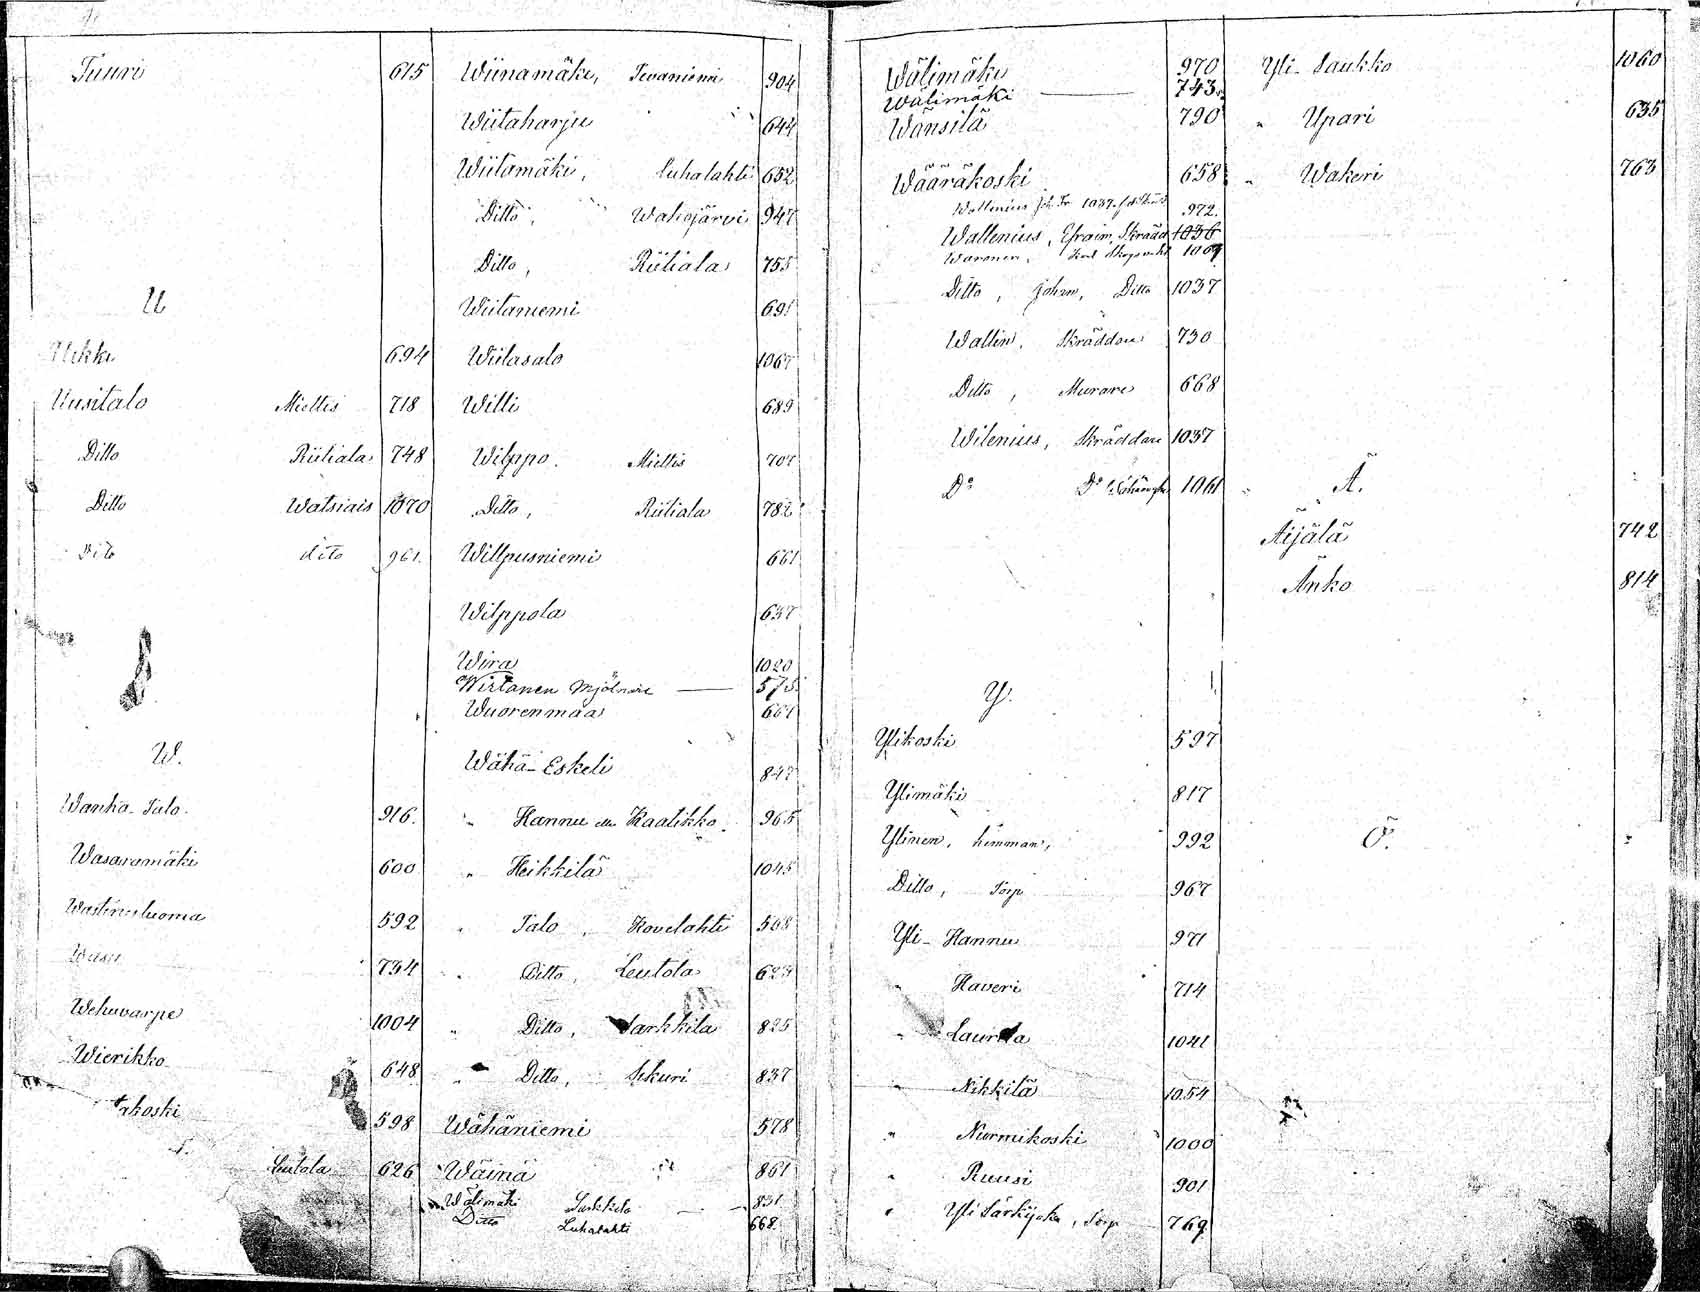 Tuuri 615
U
Uikki 694
Uusitalo Miettis 718
Ditto Riitiala 748
Ditto Watsiais 1070
Dito dito 961.
W.
Wanha-Talo. 916.
Wasaramäki 600
592
734
Wehuvarpe 1004
Wierikko 648
akoski 598
Leutola 626
Wiinamäki, Tevaniemi 904
Wiitaharju 644
Wiitamäki, Luhalahti 652
Ditto, Wahojärvi 947
Ditto, Riitiala 755
Wiitaniemi 691
Wiitasalo 1067
Willi 689
Wilppo. Miettis 707
Ditto, Riitiala 782
Willpusniemi 661
Wilppola 637
Wira 1020
Wirtanen Mjölnare — 575
Wuorenmaa 661
Wähä-Eskeli 847
" Hannu eller Kaalikko. 965
" Heikkilä 1045
" Talo, Kovelahti 568
" Ditto, Leutola 623
" Ditto, Sarkkila 825
" Ditto, Sikuri 837
Wähäniemi 578
Wäinä 861
Wälimäki Sarkkila — 831
Ditto Luhalahti 668
Wälimäki 970
Wälimäki — 743
Wänsilä 790
Wääräkoski 658
Wallenius 972.
Wallenius, Efraim, Skrädd 1036
Waronen, 1069
Ditto, Johan, Ditto 1037
Wallin, Skräddare 730
Ditto, Murare 668
Wilenius, Skräddare 1037
Do Do 1061
Y.
Ylikoski 597
Ylimäki 817
Ylinen, himman, 992
Ditto, Torp 967
Yli-Hannu 971
" Haveri 714
" Laurila 1041
" Nikkilä 1054
" Nurmikoski 1000
" Ruusi 901
" Yli Särkijoki, Torp 769
Yli-Saukko 1060
" Upari 635
" Wakeri 763
Ä.
Äijälä 742
Änko 814
Ö.